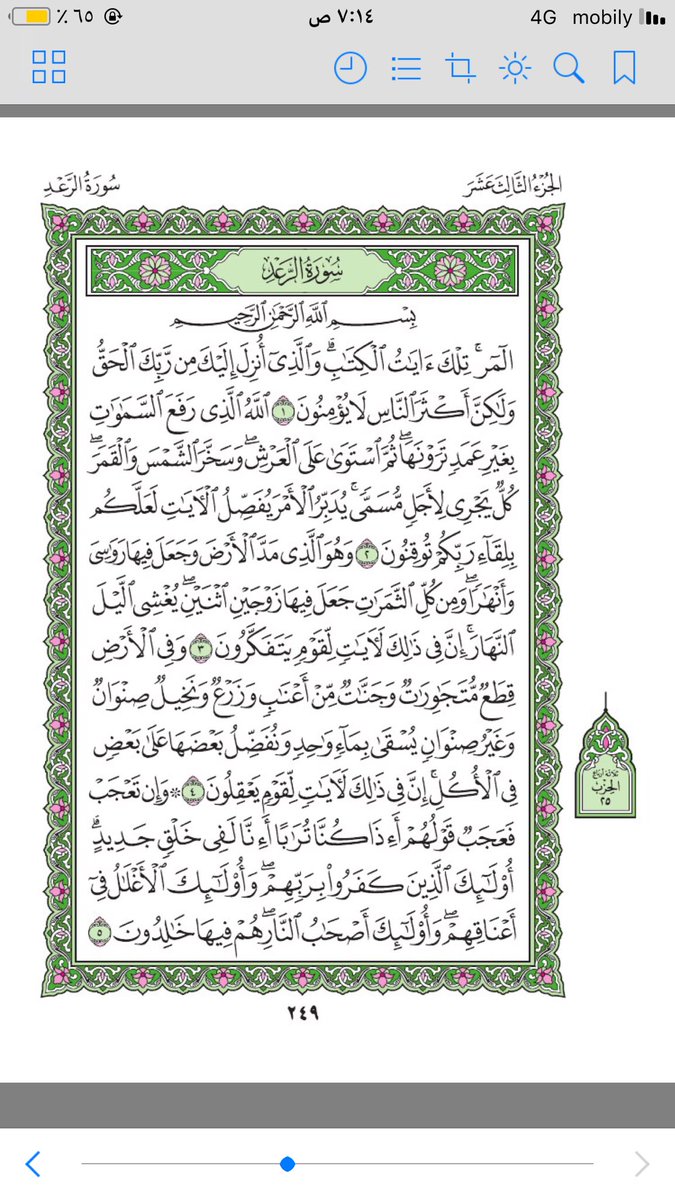 ٪ ٦٥
٧:١٤ ص
4G mobily
الجزء الثالث عشر
سورة الرعد
سُورَةُ الرَّعْدِ
بِسْمِ ٱللَّهِ ٱلرَّحْمَٰنِ ٱلرَّحِيمِ
الٓمٓرۚ تِلْكَ ءَايَٰتُ ٱلْكِتَٰبِۗ وَٱلَّذِىٓ أُنزِلَ إِلَيْكَ مِن رَّبِّكَ ٱلْحَقُّ
وَلَٰكِنَّ أَكْثَرَ ٱلنَّاسِ لَا يُؤْمِنُونَ ١ ٱللَّهُ ٱلَّذِى رَفَعَ ٱلسَّمَٰوَٰتِ
بِغَيْرِ عَمَدٍ تَرَوْنَهَاۖ ثُمَّ ٱسْتَوَىٰ عَلَى ٱلْعَرْشِۖ وَسَخَّرَ ٱلشَّمْسَ وَٱلْقَمَرَۖ
كُلٌّ يَجْرِى لِأَجَلٍ مُّسَمًّىۚ يُدَبِّرُ ٱلْأَمْرَ يُفَصِّلُ ٱلْءَايَٰتِ لَعَلَّكُم
بِلِقَآءِ رَبِّكُمْ تُوقِنُونَ ٢ وَهُوَ ٱلَّذِى مَدَّ ٱلْأَرْضَ وَجَعَلَ فِيهَا رَوَٰسِىَ
وَأَنْهَٰرًاۖ وَمِن كُلِّ ٱلثَّمَرَٰتِ جَعَلَ فِيهَا زَوْجَيْنِ ٱثْنَيْنِۖ يُغْشِى ٱلَّيْلَ
ٱلنَّهَارَۚ إِنَّ فِى ذَٰلِكَ لَءَايَٰتٍ لِّقَوْمٍ يَتَفَكَّرُونَ ٣ وَفِى ٱلْأَرْضِ
قِطَعٌ مُّتَجَٰوِرَٰتٌ وَجَنَّٰتٌ مِّنْ أَعْنَٰبٍ وَزَرْعٌ وَنَخِيلٌ صِنْوَانٌ
وَغَيْرُ صِنْوَانٍ يُسْقَىٰ بِمَآءٍ وَٰحِدٍ وَنُفَضِّلُ بَعْضَهَا عَلَىٰ بَعْضٍ
فِى ٱلْأُكُلِۚ إِنَّ فِى ذَٰلِكَ لَءَايَٰتٍ لِّقَوْمٍ يَعْقِلُونَ ٤ ۞ وَإِن تَعْجَبْ
فَعَجَبٌ قَوْلُهُمْ أَءِذَا كُنَّا تُرَٰبًا أَءِنَّا لَفِى خَلْقٍ جَدِيدٍۗ
أُو۟لَٰٓئِكَ ٱلَّذِينَ كَفَرُوا۟ بِرَبِّهِمْۖ وَأُو۟لَٰٓئِكَ ٱلْأَغْلَٰلُ فِىٓ
أَعْنَاقِهِمْۖ وَأُو۟لَٰٓئِكَ أَصْحَٰبُ ٱلنَّارِۖ هُمْ فِيهَا خَٰلِدُونَ ٥
ثلاثة أرباع
الحزب
٢٥
٢٤٩